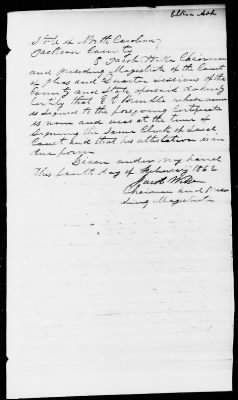 State of North Carolina
Jackson County
I Jacob Wike Chairman
and presiding Magistrate of the Court
of pleas and Quarter sessions of the
County and State aforesaid do hereby
Certify that E whose name
is signed to the foregoing Certificate
is now and was at the time of
signing the same Clerk of said
Court and that his attestation is in
due form
Given under my hand
This fourth day of February 1862
Jacob Wike
Chairman and presi
ding Magistrate